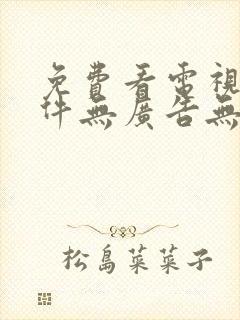 免費看電視
件無廣告無
松島菜菜子